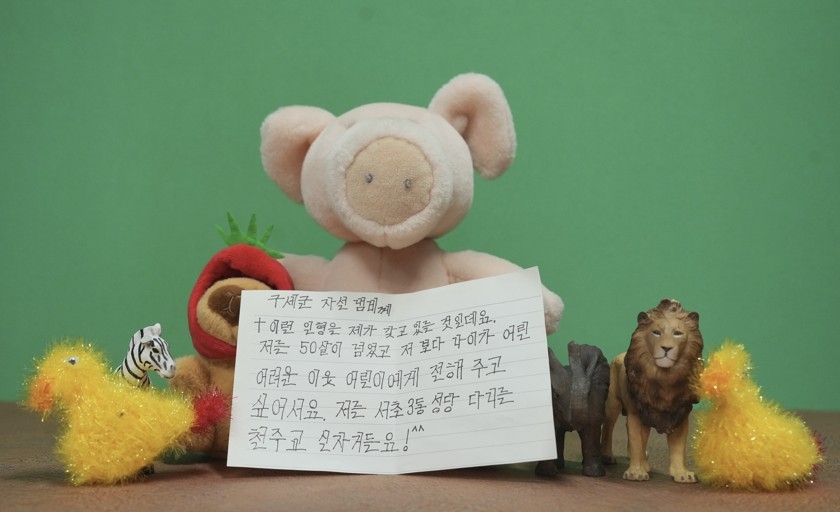 구세군 자선 냄비께
† 이런 인형은 제가 갖고 있는 것인데요.
저는 50살이 넘었고 저 보다 나이가 어린
어려운 이웃 어린이에게 전해 주고
싶어서요. 저는 서초3동 성당 다니는
천주교 신자거든요!^^